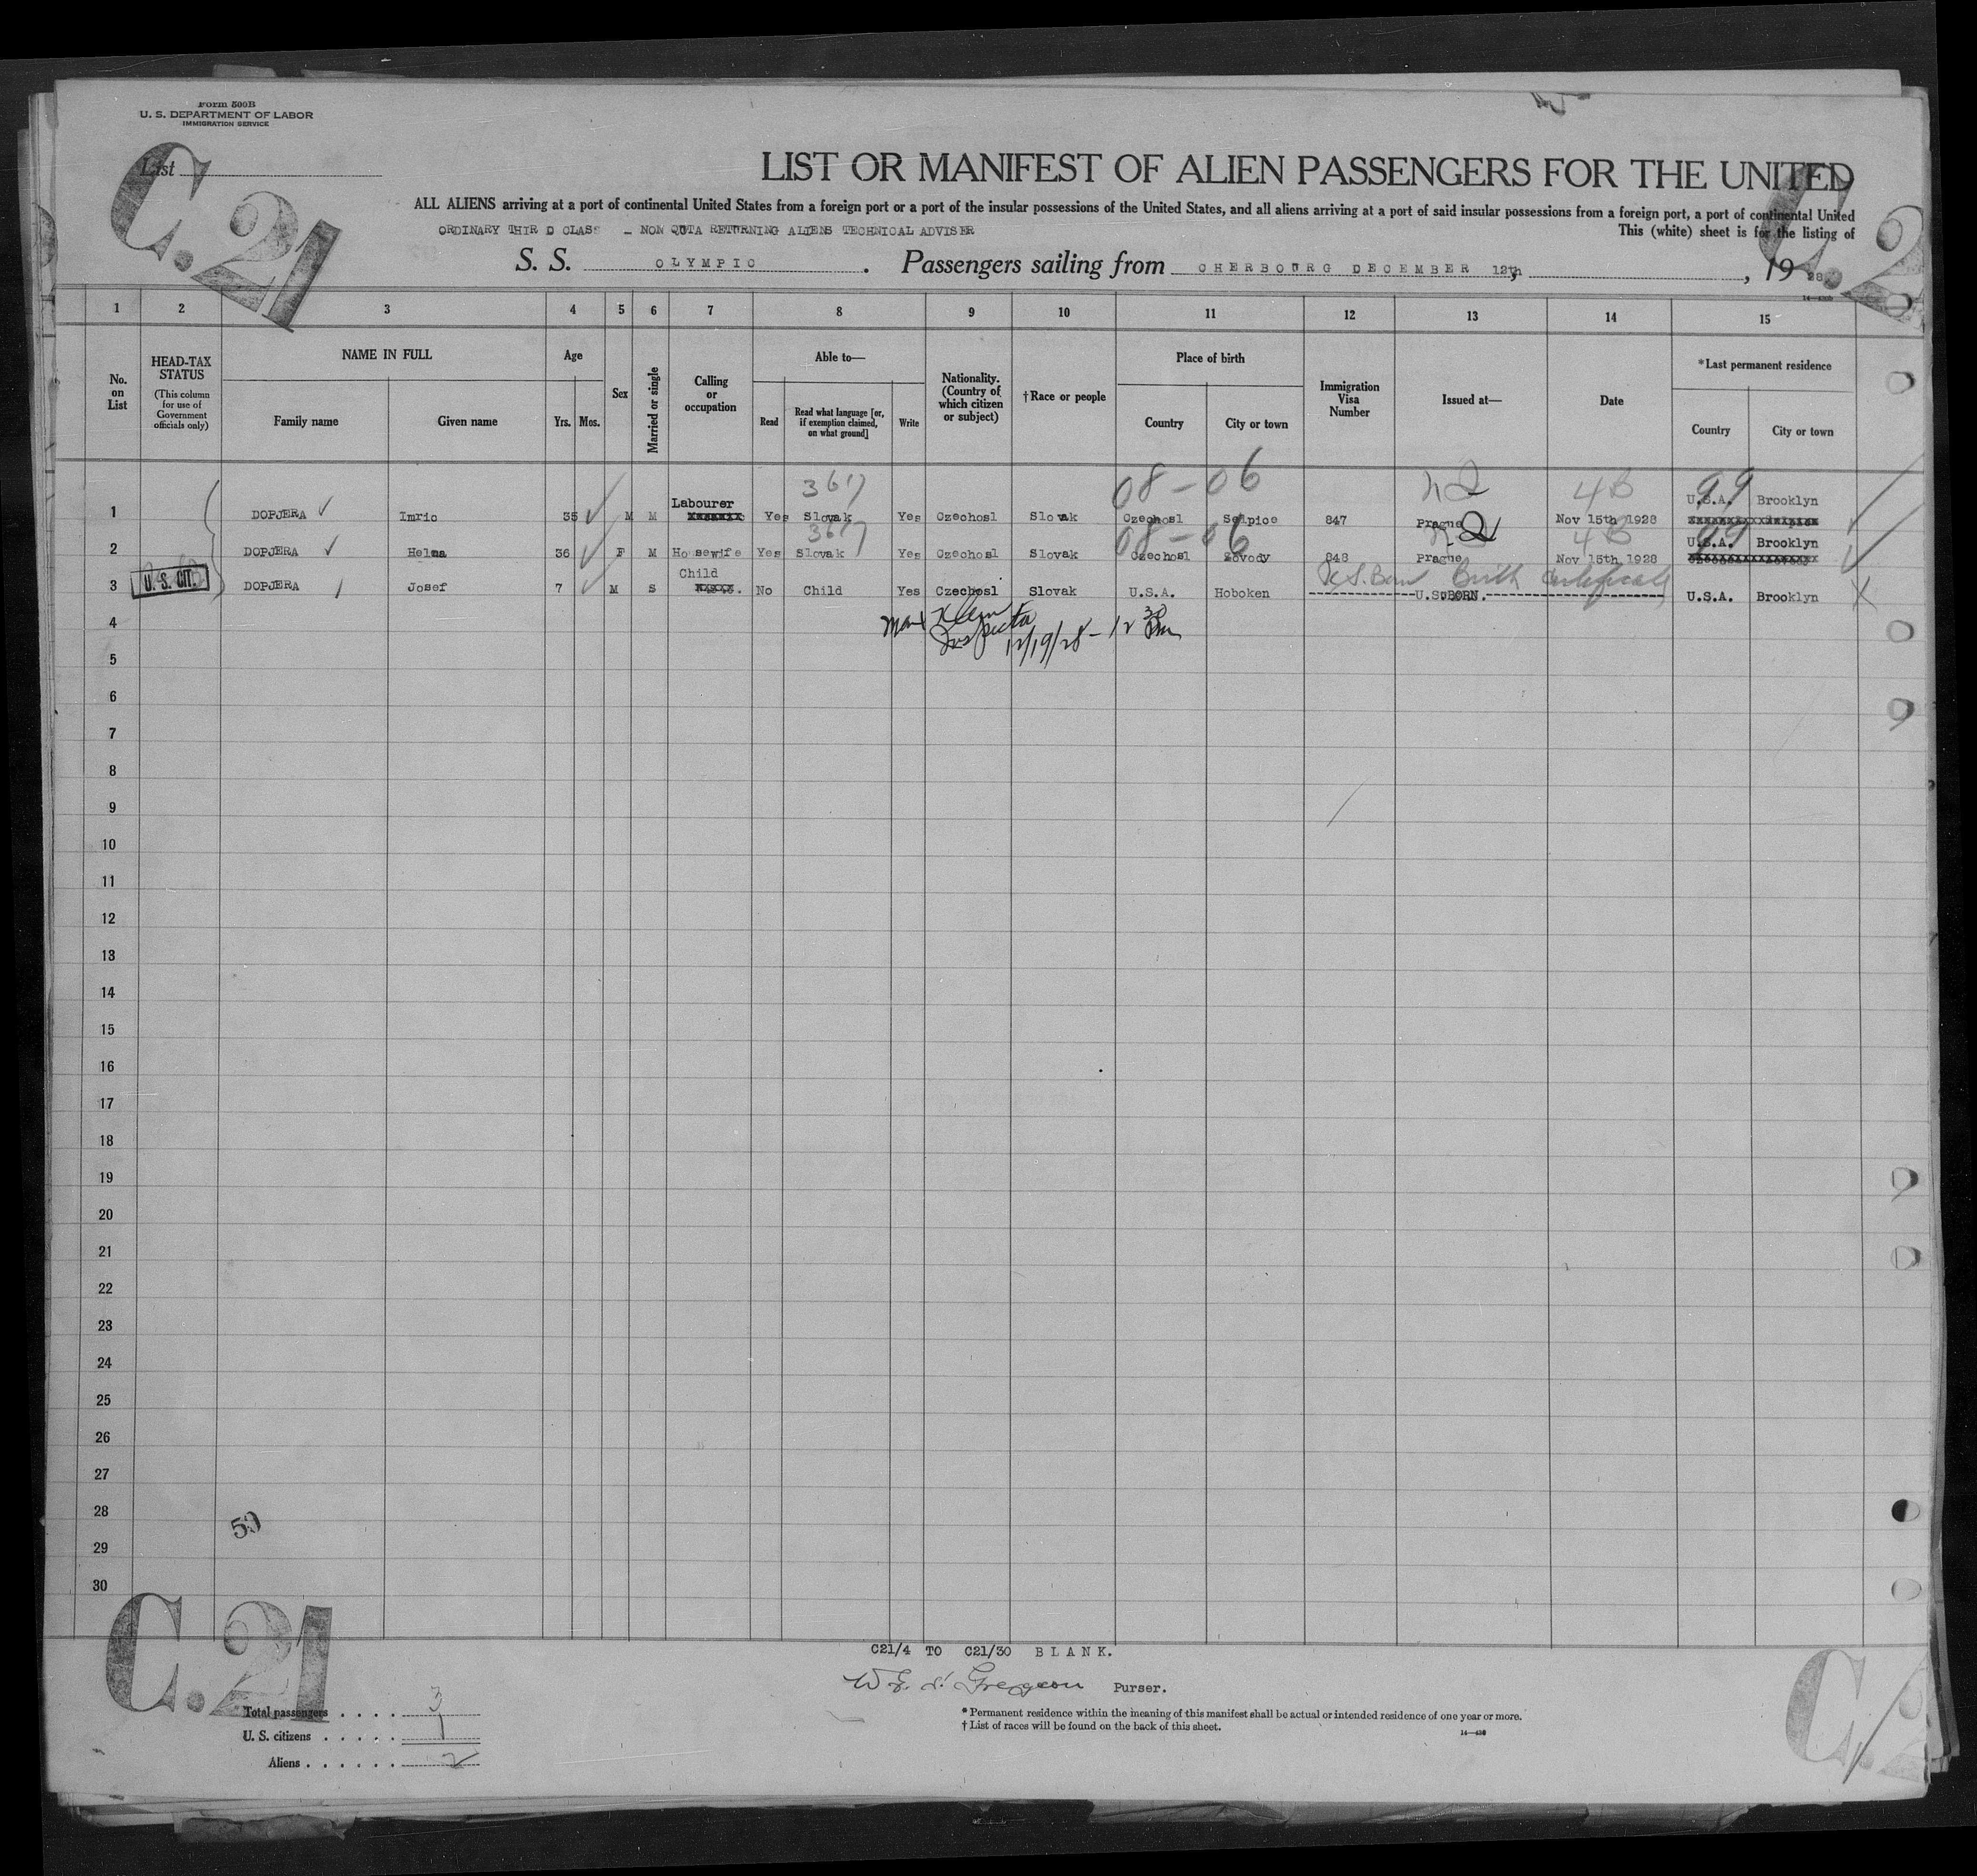 Form 500B
U. S. DEPARTMENT OF LABOR
IMMIGRATION SERVICE
List
C.21
C.2
LIST OR MANIFEST OF ALIEN PASSENGERS FOR THE UNITED
ALL ALIENS arriving at a port of continental United States from a foreign port or a port of the insular possessions of the United States, and all aliens arriving at a port of said insular possessions from a foreign port, a port of continental United
ORDINARY THIR D CLASS - NON QUTA RETURNING ALIENS TECHNICAL ADVISER
This (white) sheet is for the listing of
S. S. OLYMPIC . Passengers sailing from CHERBOURG DECEMBER 12th, , 19 28
1 2 3 4 5 6 7 8 9 10 11 12 13 14 15
No. on List
HEAD-TAX STATUS (This column for use of Government officials only)
NAME IN FULL
Family name Given name
Age
Yrs. Mos.
Sex
Married or single
Calling or occupation
Able to—
Read Read what language [or, if exemption claimed, on what ground] Write
Nationality. (Country of which citizen or subject)
†Race or people
Place of birth
Country City or town
Immigration Visa Number
Issued at—
Date
*Last permanent residence
Country City or town
367 08-06 4B 99
1 DOPJERA Imric 35 M M Labourer Yes Slovak Yes Czechosl Slovak Czechosl Selpice 847 Prague Nov 15th 1928 U.S.A. Brooklyn
367 08-06 4B 99
2 DOPJERA Helma 36 F M Housewife Yes Slovak Yes Czechosl Slovak Czechosl Zovody 848 Prague Nov 15th 1928 U.S.A. Brooklyn
U.S. Born Birth Certificate
U. S. CIT.
3 DOPJERA Josef 7 M S Child No Child Yes Czechosl Slovak U.S.A. Hoboken U.S.BORN. U.S.A. Brooklyn
Max Klein
Inspector
12/19/28 - 12 30 Pm
4
5
6
7
8
9
10
11
12
13
14
15
16
17
18
19
20
21
22
23
24
25
26
27
28
29
30
50
C.21
C21/4 TO C21/30 BLANK.
Purser.
Total passengers . . . . 3
U. S. citizens . . . . . 1
Aliens . . . . . . 2
* Permanent residence within the meaning of this manifest shall be actual or intended residence of one year or more.
† List of races will be found on the back of this sheet.
C./